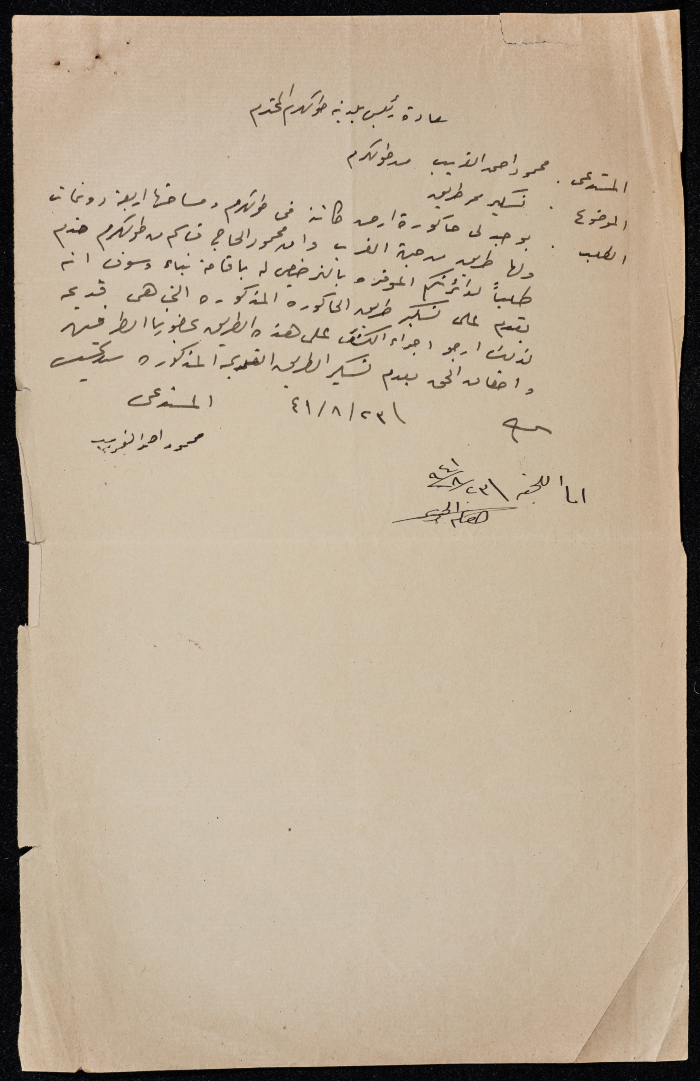 سعادة رئيس بلدية طولكرم المحترم
المستدعي . محمود احمد الغريب من طولكرم
الموضوع . تسكير ممر طريق
الطلب . يوجد لي حاكورة ارض كائنة في طولكرم ومساحتها اربعة دونمات
ولها طريق من جهة الغرب وان محمود الحاج قاسم من طولكرم قدم
طلباً لدائرتكم الموقره بالترخيص له باقامة بناء وسوف انه
يقدم على تسكير طريق الحاكوره المذكوره التي هي قديمه
لذلك ارجو اجراء الكشف على هذه الطريق بحضورنا الطرفين
واحقاق الحق بعدم تسكير الطريق القديمه المذكوره سيدي
٢٣/٨/٤١ المستدعي
محمود احمد الغريب
اللجنة ٢٣/٨/٩٤١